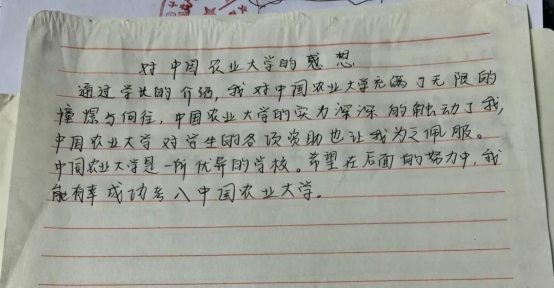 对中国农业大学的感想
通过学长的介绍,我对中国农业大学充满了无限的
憧憬与向往,中国农业大学的实力深深的触动了我,
中国农业大学对学生的各项资助也让我为之佩服。
中国农业大学是一所优异的学校。希望在后面的努力中,我
能有幸成功考入中国农业大学。